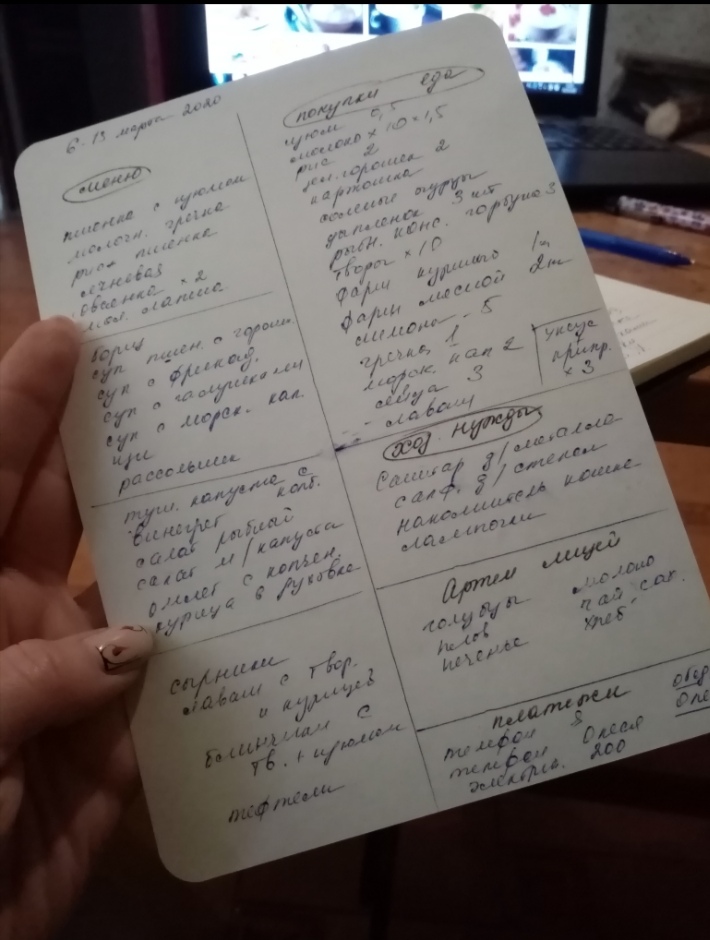 6-13 марта 2020
меню
пшенка с изюмом
молочн. гречка
рис + пшенка
ячневая
овсянка × 2
мол. лапша
борщ
суп пшен. с горош.
суп с фрикад.
суп с галушками
суп с морск. кап.
щи
рассольник
туш. капуста с колб.
винегрет
салат рыбный
салат м/капуста
омлет с копчен.
курица в духовке
сырники
лаваш с твор.
и курицей
блинчики с
тв. + изюмом
тефтели
покупки еда
изюм 0,5
молоко × 10 × 1,5
рис 2
зел. горошек 2
картошка
соленые огурцы
цыпленок 3 шт
рыбн. конс. горбуша 3
творог × 10
фарш куриный 1кг
фарш мясной 2кг
лимоны - 5
гречка 1
морск. кап 2
яйца 3
лаваш
уксус
припр.
× 3
хоз. нужды
салф. д/стекол
наполнитель кошке
лампочки
Артем лицей
голубцы молоко
плов чай
печенье хлеб
платежи
телефон Я
телефон Олеся
электрич. 200